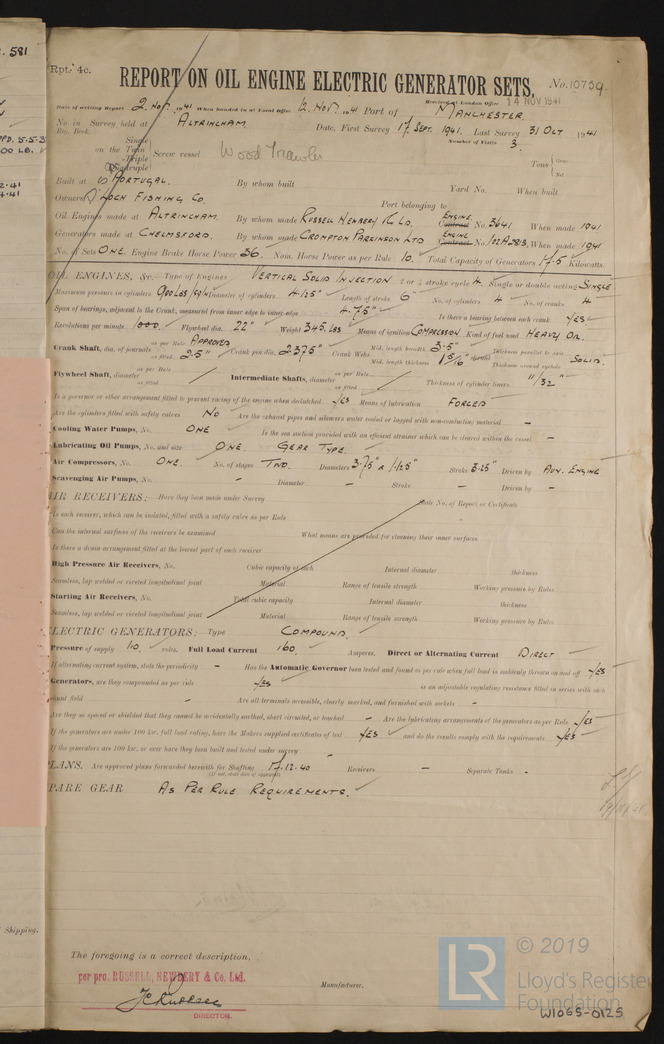 . 581
Rpt. 4c.
REPORT ON OIL ENGINE ELECTRIC GENERATOR SETS.
No. 10739
Received at London Office 14 NOV 1941
Date of writing Report 2. Nov. 1941 When handed in at Local Office 12. Nov. 1941 Port of MANCHESTER
No. in Reg. Book. Survey held at ALTRINCHAM. Date, First Survey 17. SEPT. 1941. Last Survey 31 OCT 1941
Number of Visits 3.
on the Single Twin Triple Quadruple Screw vessel Wood Trawler Tons Gross Net
Built at PORTUGAL. By whom built Yard No. When built
Owners LOCH FISHING CO. Port belonging to
Oil Engines made at ALTRINCHAM. By whom made RUSSELL NEWBERY & Co LD. ENGINE Contract No. 3641 When made 1941
Generators made at CHELMSFORD. By whom made CROMPTON PARKINSON LTD ENGINE Contract No. When made 1941
No. of Sets ONE. Engine Brake Horse Power 36. Nom. Horse Power as per Rule 10. Total Capacity of Generators 17.5 Kilowatts.
OIL ENGINES, &c.—Type of Engines VERTICAL SOLID INJECTION 2 or 4 stroke cycle 4. Single or double acting SINGLE
Maximum pressure in cylinders 900 LBS/SQ IN Diameter of cylinders 4.125" Length of stroke 6" No. of cylinders 4 No. of cranks 4
Span of bearings, adjacent to the Crank, measured from inner edge to inner edge 4.75" Is there a bearing between each crank YES
Revolutions per minute 1000. Flywheel dia. 22" Weight 345 LBS Means of ignition COMPRESSION. Kind of fuel used HEAVY OIL.
Crank Shaft, dia. of journals as per Rule APPROVED as fitted 2.5" Crank pin dia. 2.375" Crank Webs Mid. length breadth 3.5" Mid. length thickness 1 5/16" Thickness parallel to axis Thickness around eyehole SOLID.
Flywheel Shaft, diameter as per Rule as fitted Intermediate Shafts, diameter as per Rule as fitted Thickness of cylinder liners 11/32"
Is a governor or other arrangement fitted to prevent racing of the engine when declutched YES Means of lubrication FORCED
Are the cylinders fitted with safety valves NO Are the exhaust pipes and silencers water cooled or lagged with non-conducting material -
Cooling Water Pumps, No. ONE Is the sea suction provided with an efficient strainer which can be cleared within the vessel -
Lubricating Oil Pumps, No. and size ONE. GEAR TYPE.
Air Compressors, No. ONE. No. of stages TWO. Diameters 3.75" & 1.125" Stroke 3.25" Driven by AUX. ENGINE
Scavenging Air Pumps, No. - Diameter - Stroke - Driven by -
AIR RECEIVERS:—Have they been made under Survey State No. of Report or Certificate
Is each receiver, which can be isolated, fitted with a safety valve as per Rule
Can the internal surfaces of the receivers be examined What means are provided for cleaning their inner surfaces
Is there a drain arrangement fitted at the lowest part of each receiver
High Pressure Air Receivers, No. Cubic capacity of each Internal diameter thickness
Seamless, lap welded or riveted longitudinal joint Material Range of tensile strength Working pressure by Rules
Starting Air Receivers, No. Total cubic capacity Internal diameter thickness
Seamless, lap welded or riveted longitudinal joint Material Range of tensile strength Working pressure by Rules
ELECTRIC GENERATORS:—Type COMPOUND.
Pressure of supply 110. volts. Full Load Current 160. Amperes. Direct or Alternating Current DIRECT
If alternating current system, state the periodicity - Has the Automatic Governor been tested and found as per rule when full load is suddenly thrown on and off YES
Generators, are they compounded as per rule YES is an adjustable regulating resistance fitted in series with each
shunt field - Are all terminals accessible, clearly marked, and furnished with sockets -
Are they so spaced or shielded that they cannot be accidentally earthed, short circuited, or touched - Are the lubricating arrangements of the generators as per Rule YES
If the generators are under 100 kw. full load rating, have the Makers supplied certificates of test YES and do the results comply with the requirements YES
If the generators are 100 kw. or over have they been built and tested under survey
PLANS. Are approved plans forwarded herewith for Shafting 17.12.40 Receivers - Separate Tanks -
(If not, state date of approval)
SPARE GEAR AS PER RULE REQUIREMENTS.
Shipping.
The foregoing is a correct description,
per pro. RUSSELL, NEWBERY & Co. Ltd.
Manufacturer.
DIRECTOR.
LR
© 2019
Lloyd's Register
Foundation
W1065-0125